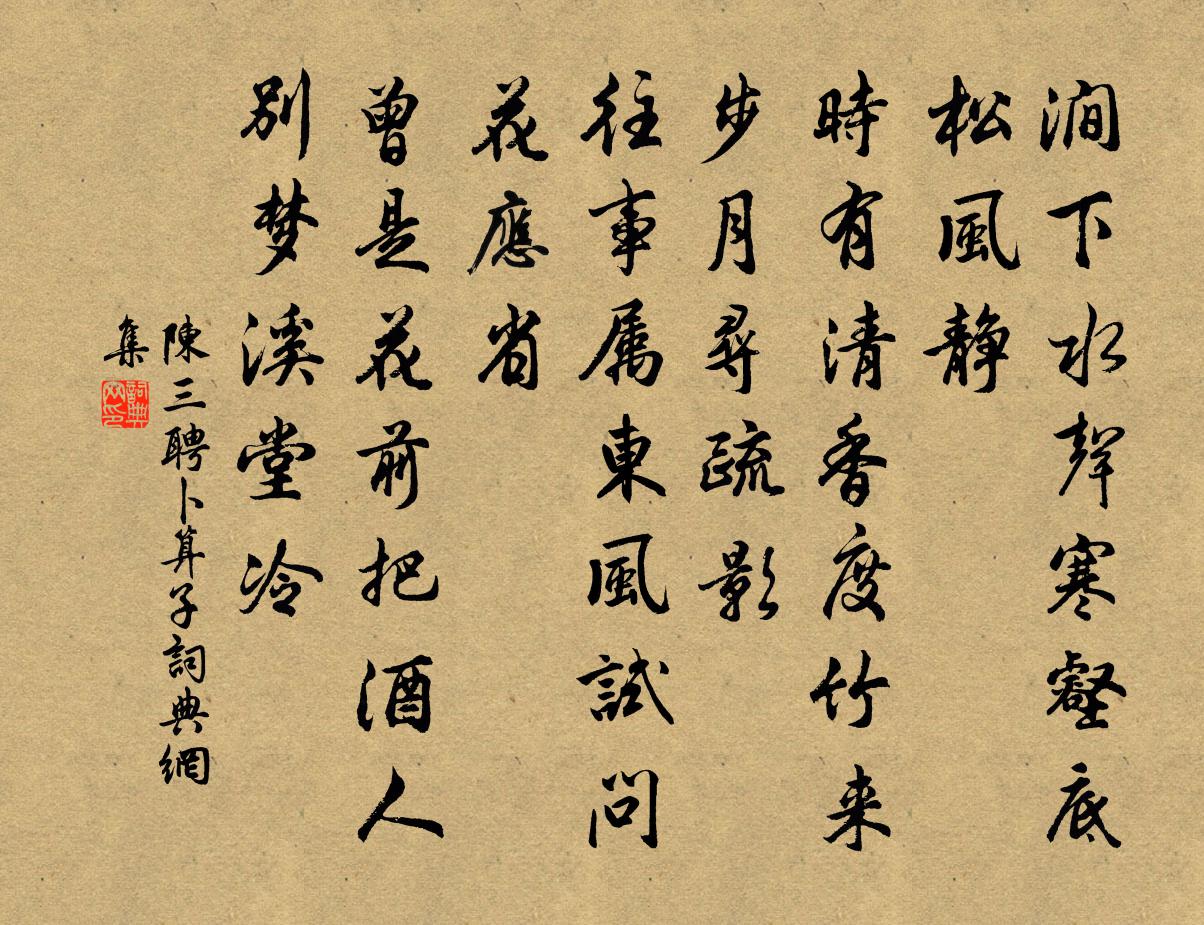 澗下水聲寒壑底
松風静
時有清香度竹来
步月尋疏影
往事属東風試問
花應省
曾是花前把酒人
别梦溪堂冷
陳三聘卜算子詞典網
集
詞典
网印